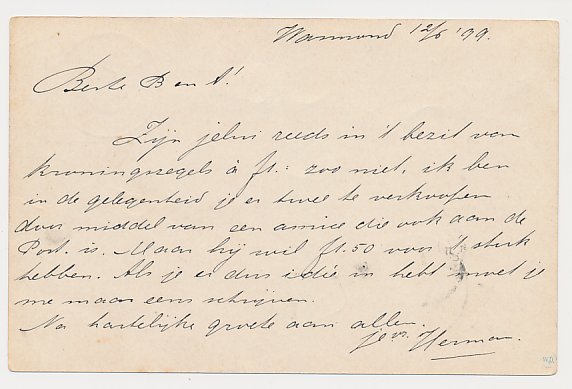 Warmond 12/6 '99.
Beste B en A!
Zijn jelui reeds in 't bezit van
kroningszegels à fl.: zoo niet, ik ben
in de gelegenheid je er twee te verkoopen
door middel van een amice die ook aan de
Post. is. Maar hij wil fl. 50 voor 't stuk
hebben. Als je er dus idée in hebt moet je
me maar eens schrijven.
Na hartelijke groete aan allen.
je vr. Herman.